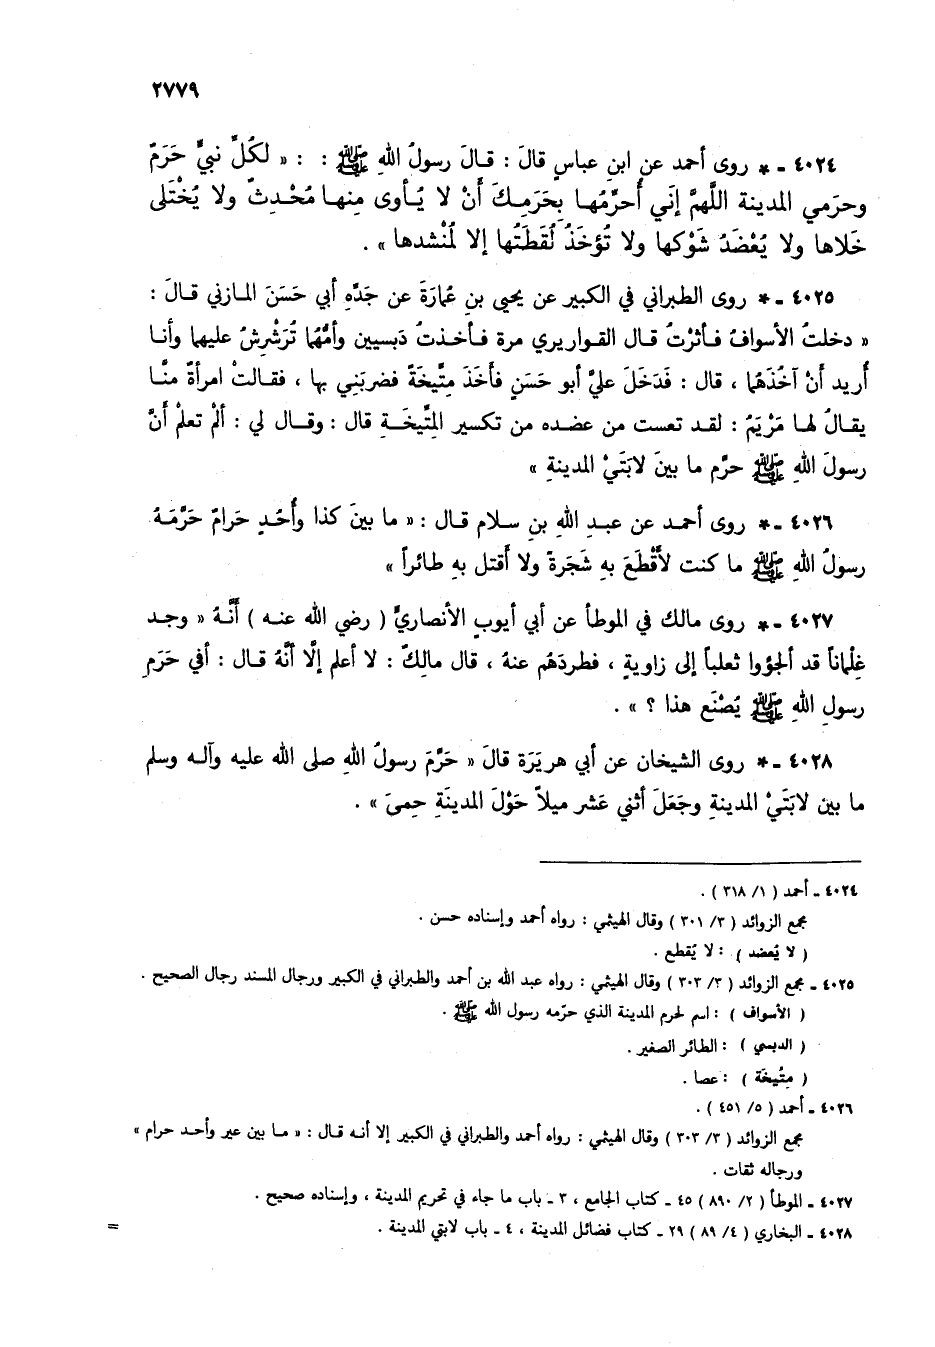 ٢٧٧٩
٤٠٢٤ - * روى أحمد عن ابنِ عباسٍ قالَ : قالَ رسولُ اللهِ ﷺ : : « لكُلِّ نبيٍّ حَرَمٌ
وحرَمي المدينة اللَّهمَّ إنَي أُحرِّمُها بِحَرَمِكَ أَنْ لا يُأوى مِنها مُحْدِثٌ ولا يُخْتَلى
خَلاها ولا يُعْضَدُ شَوْكها ولا تُؤخَذُ لُقَطَتُها إلا لمُنْشدها » .
٤٠٢٥ - * روى الطبراني في الكبير عن يحيى بنِ عُمارَةَ عن جَدِّهِ أبي حَسَنَ المازني قالَ :
« دخلتُ الأسوافَ فأثرْتُ قال القواريري مرة فأخذتُ دَبسيين وأمُّهَا تُرَشْرِشُ عليها وأنا
أُريد أَنْ آخُذَهُما ، قال : فَدَخَلَ عليَّ أبو حَسَنٍ فأَخَذَ مِتِّيخَةً فضربَني بها ، فقالتْ امرأةٌ منَّا
يقالُ لها مَرْيَمُ : لقد تعست من عضده من تكسير المِتِّيخَةِ قال : وقال لي : ألمْ تعلمْ أَنَّ
رسولَ اللهِ ﷺ حرَّم ما بينَ لابَتَيْ المدينةِ »
٤٠٢٦ - * روى أحمد عن عبدِ اللهِ بنِ سلام قال : « ما بينَ كذا وأُحُدٍ حَرامٌ حَرَّمَهُ
رسولُ اللهِ ﷺ ما كنت لأَقْطَعَ بهِ شَجَرةً ولا أَقتل بهِ طائراً »
٤٠٢٧ - * روى مالك في الموطأ عن أبي أيوبِ الأنصاريِّ ( رضي الله عنه ) أنَّهُ « وجد
غِلْماناً قد ألجؤوا ثعلباً إلى زاويةٍ ، فطردَهُم عنهُ ، قال مالكٌ : لا أعلم إلَّا أنَّهُ قال : أفي حَرَمِ
رسولِ اللهِ ﷺ يُصْنَع هذا ؟ » .
٤٠٢٨ - * روى الشيخان عن أبي هريَرَة قالَ « حَرَّمَ رسولُ اللهِ صلى الله عليه وآله وسلم
ما بين لابَتَيْ المدينةِ وجَعَلَ أثني عَشر ميلاً حَوْلَ المدينَةِ حِمىَ » .
٤٠٢٤ - أحمد ( ١/ ٣١٨ ) .
مجمع الزوائد ( ٣/ ٣٠١ ) وقال الهيثمي : رواه أحمد وإسناده حسن .
( لا يُعضد ) : لا يُقطع .
٤٠٢٥ - مجمع الزوائد ( ٣/ ٣٠٣ ) وقال الهيثمي : رواه عبد الله بن أحمد والطبراني في الكبير ورجال المسند رجال الصحيح .
( الأسواف ) : اسم لحرم المدينة الذي حرّمه رسول الله ﷺ .
( الدبسي ) : الطائر الصغير .
( مِتِّيخَة ) : عصا .
٤٠٢٦ - أحمد ( ٥/ ٤٥١ ) .
مجمع الزوائد ( ٣/ ٣٠٣ ) وقال الهيثمي : رواه أحمد والطبراني في الكبير إلا أنه قال : « ما بين عير وأحد حرام »
ورجاله ثقات .
٤٠٢٧ - الموطأ ( ٢/ ٨٩٠ ) ٤٥ - كتاب الجامع ، ٣ - باب ما جاء في تحريم المدينة ، وإسناده صحيح .
٤٠٢٨ - البخاري ( ٤/ ٨٩ ) ٢٩ - كتاب فضائل المدينة ، ٤ - باب لابتي المدينة .
=